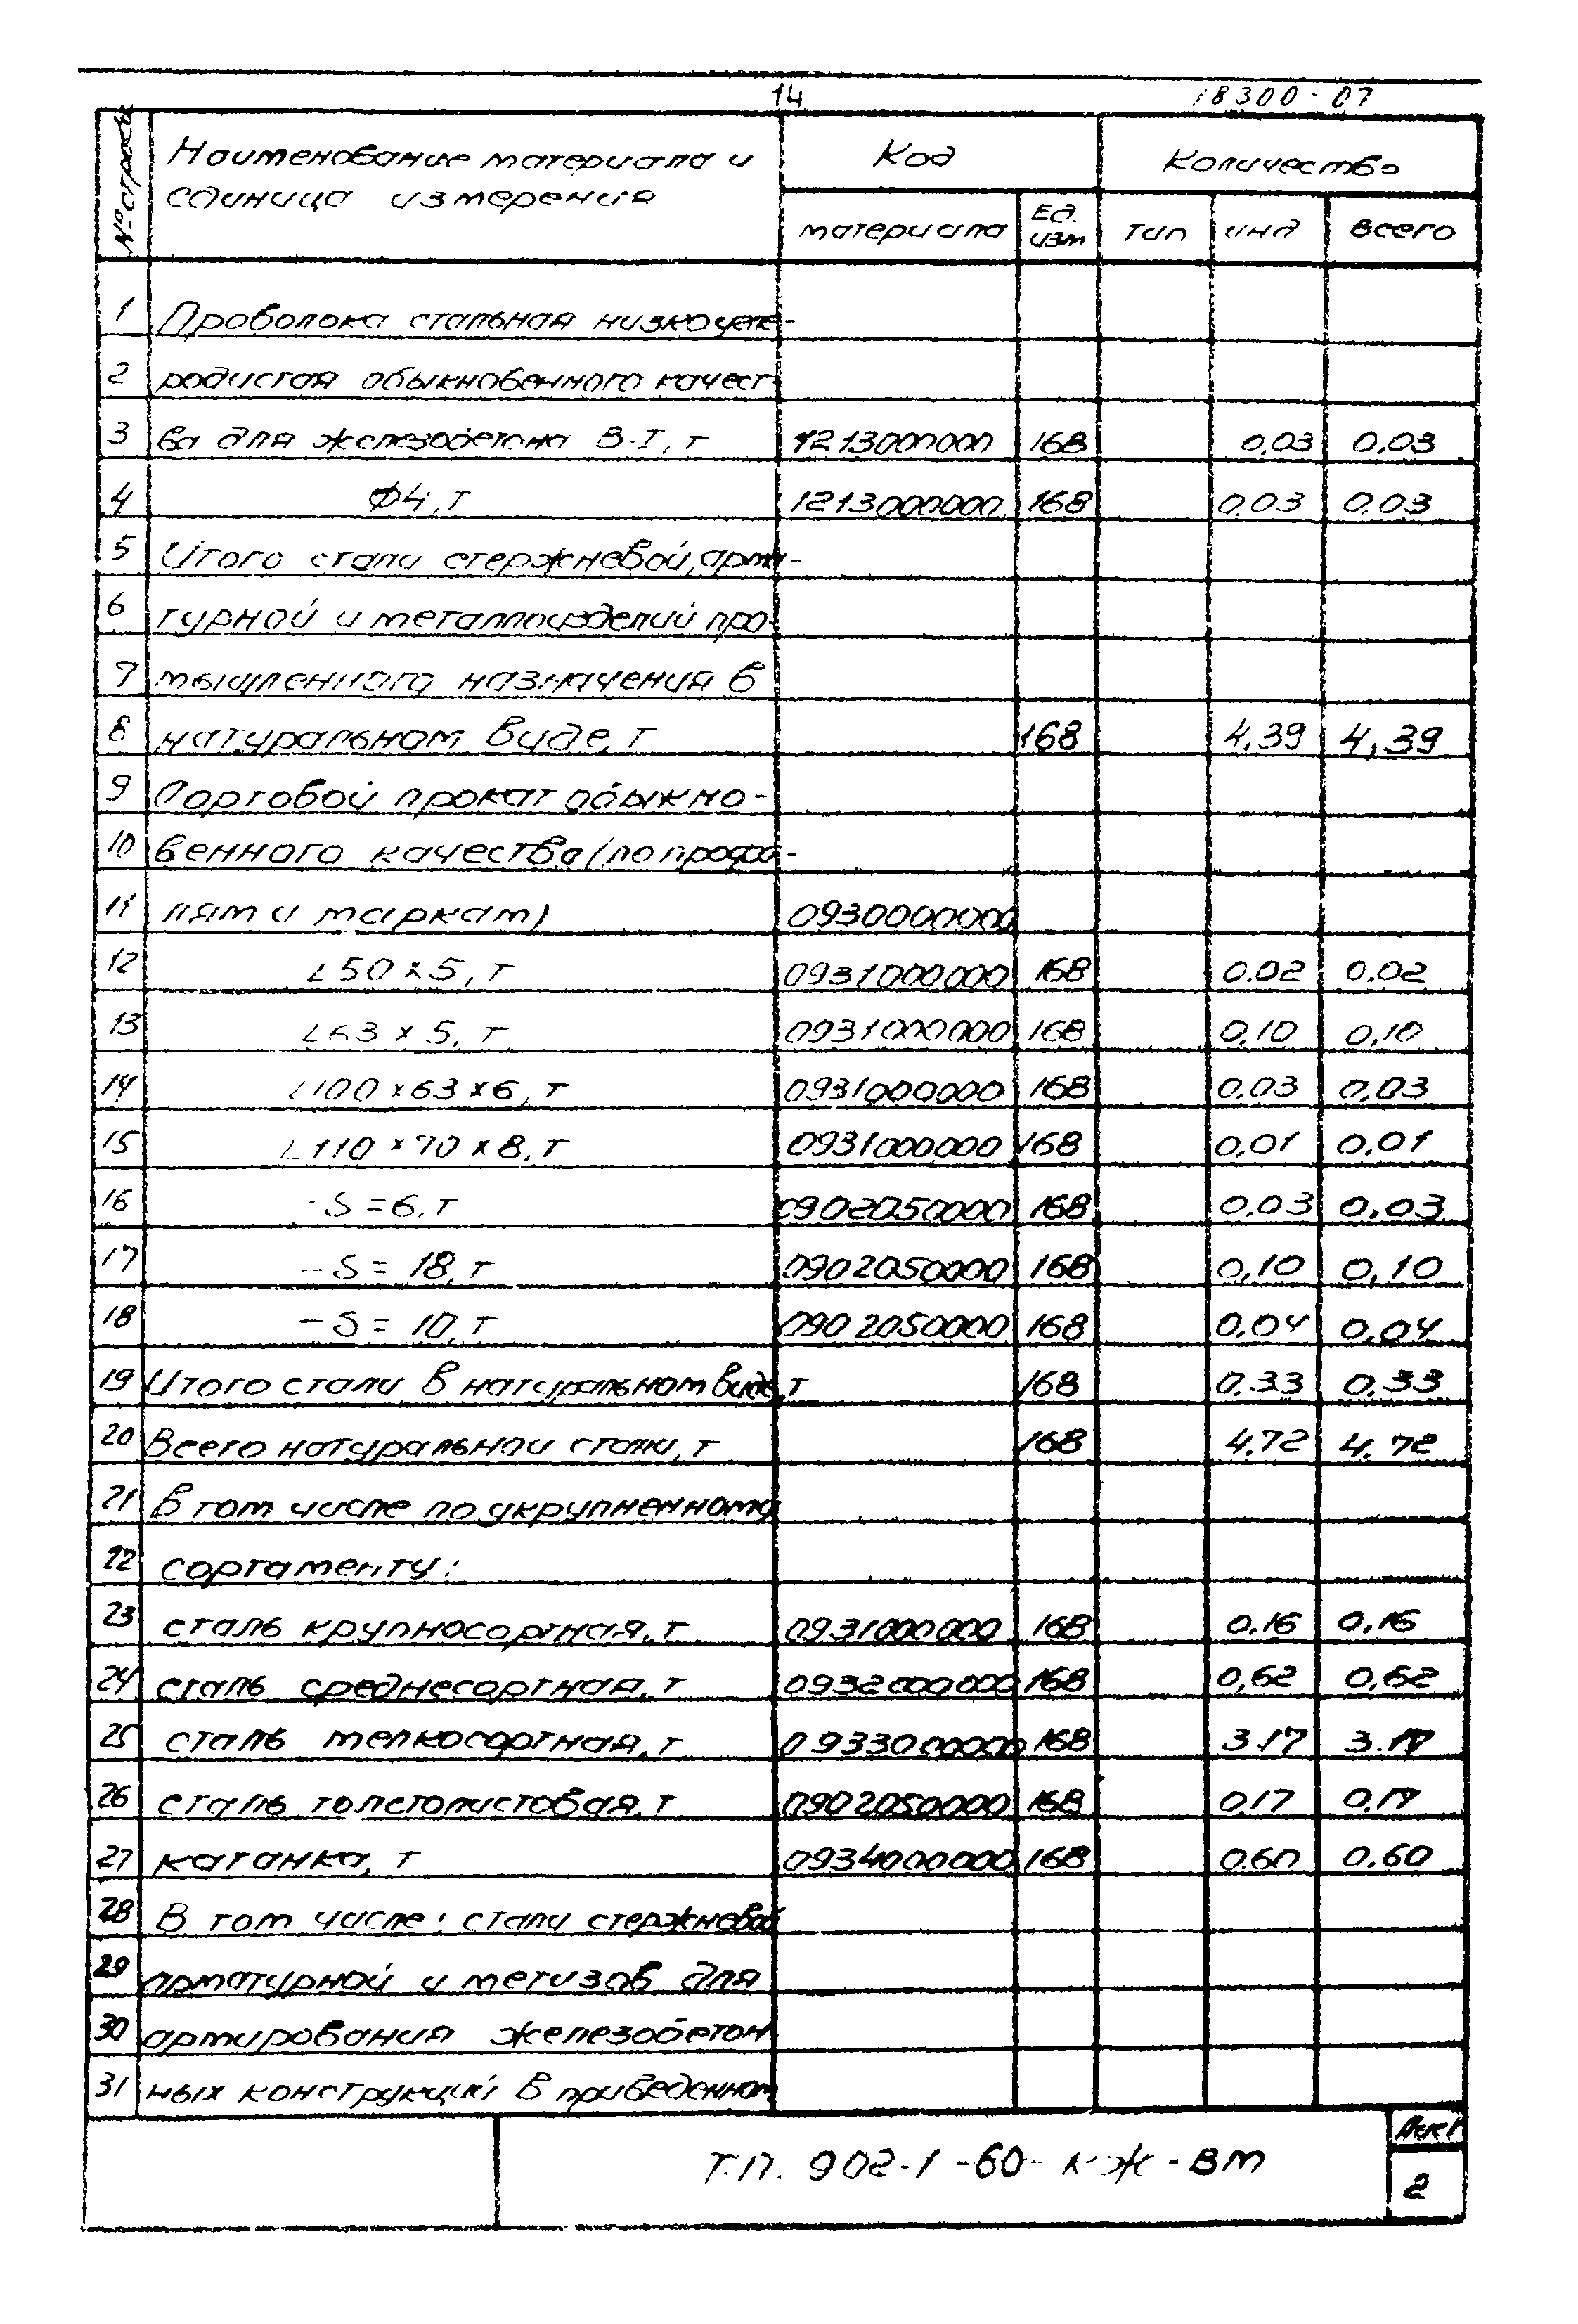 14
18300-07
№ строки
Наименование материала и
единица измерения
Код
Количество
материала
Ед.
изм
тип
инд
всего
1 Проволока стальная низкоугле-
2 родистая обыкновенного качест-
3 ва для железобетона В-I, т 1213000000 168 0,03 0,03
4 Ф4, т 1213000000 168 0,03 0,03
5 Итого стали стержневой, арма-
6 турной и металлоизделий про-
7 мышленного назначения в
8 натуральном виде, т 168 4,39 4,39
9 Сортовой прокат обыкно-
10 венного качества (по профи-
11 лям и маркам) 0930000000
12 L50×5, т 0931000000 168 0.02 0.02
13 L63×5, т 0931000000 168 0,10 0,10
14 L100×63×6, т 0931000000 168 0,03 0,03
15 L110×70×8, т 0931000000 168 0,01 0,01
16 -S=6, т 0902050000 168 0.03 0.03
17 -S=18, т 0902050000 168 0,10 0,10
18 -S=10, т 0902050000 168 0.04 0.04
19 Итого стали в натуральном виде, т 168 0.33 0.33
20 Всего натуральной стали, т 168 4.72 4.72
21 В том числе по укрупненному
22 сортаменту:
23 сталь крупносортная, т 0931000000 168 0.16 0.16
24 сталь среднесортная, т 0932000000 168 0,62 0,62
25 сталь мелкосортная, т 0933000000 168 3.17 3.17
26 сталь толстолистовая, т 0902050000 168 0,17 0.17
27 катанка, т 0934000000 168 0.60 0.60
28 В том числе: стали стержневой
29 арматурной и метизов для
30 армирования железобетон
31 ных конструкций в приведенном
Т.П. 902-1-60-КЖ-ВМ
Лист
2